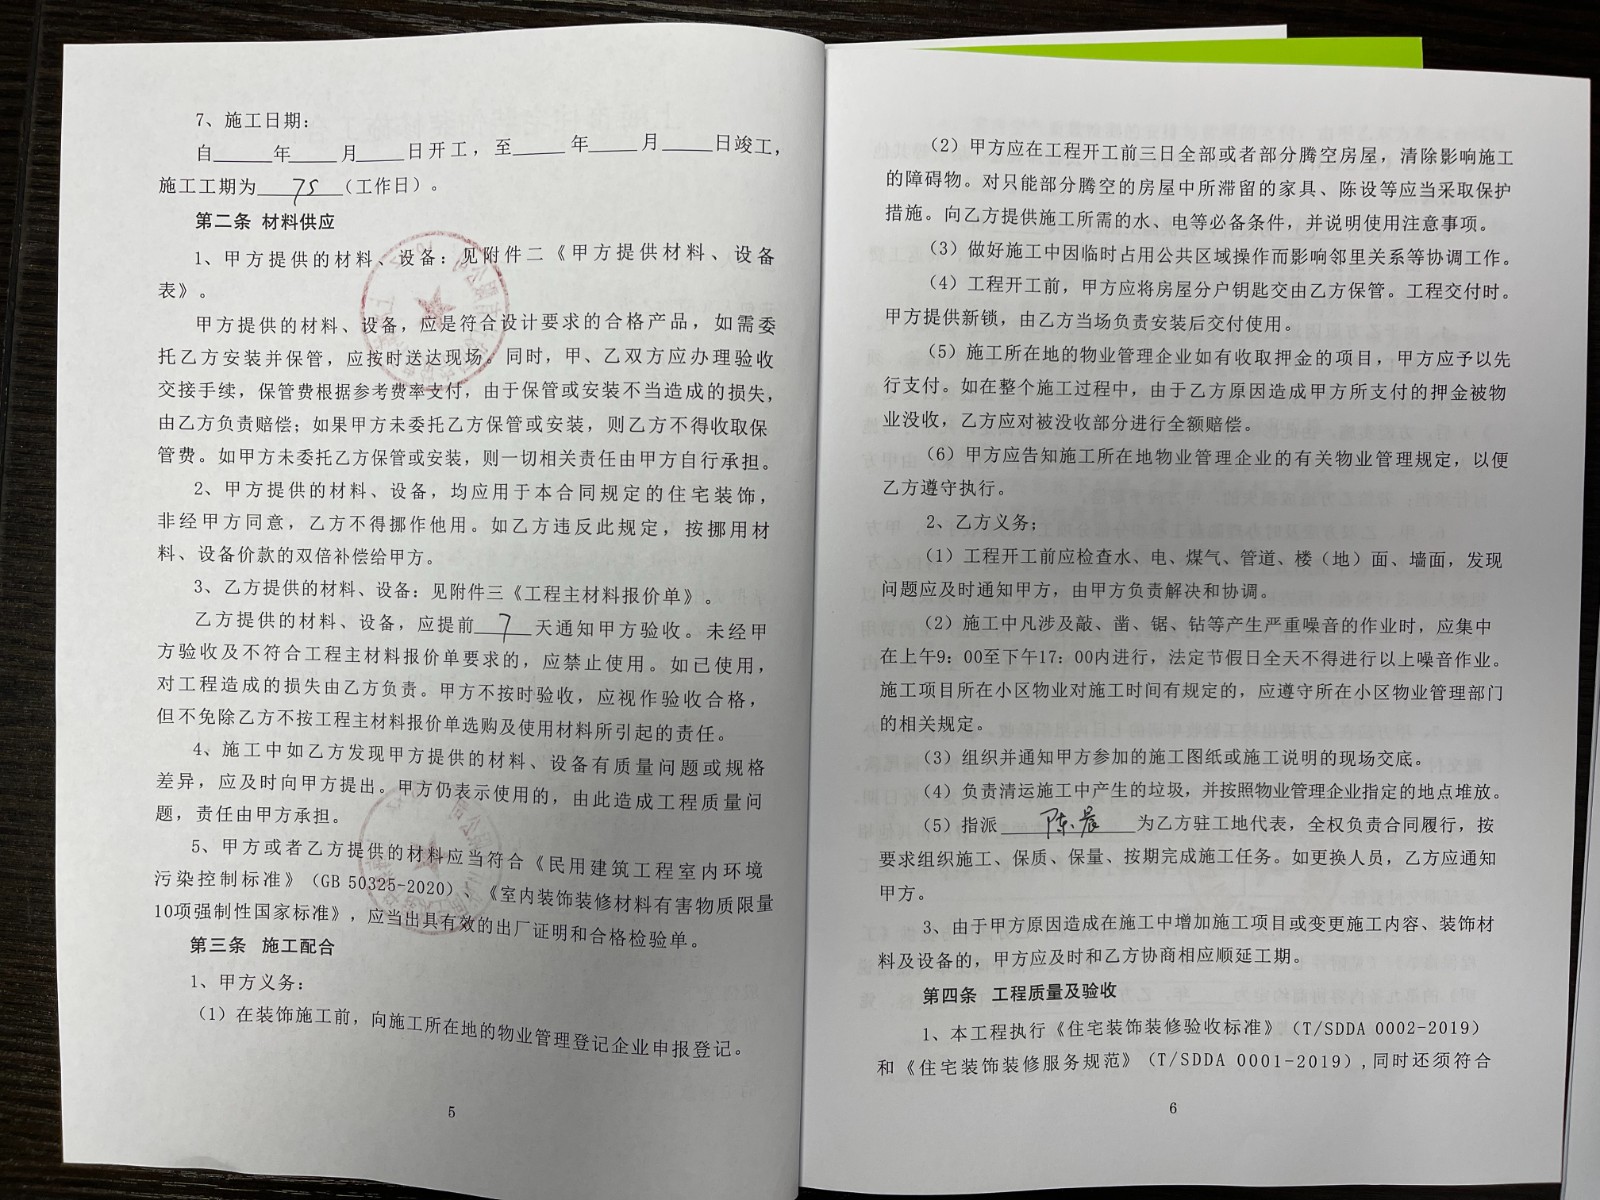 7、施工日期：
自____年____月____日开工，至____年____月____日竣工，
施工工期为 75 （工作日）。
第二条 材料供应
1、甲方提供的材料、设备：见附件二《甲方提供材料、设备
表》。
甲方提供的材料、设备，应是符合设计要求的合格产品，如需委
托乙方安装并保管，应按时送达现场。同时，甲、乙双方应办理验收
交接手续，保管费根据参考费率支付，由于保管或安装不当造成的损失，
由乙方负责赔偿；如果甲方未委托乙方保管或安装，则乙方不得收取保
管费。如甲方未委托乙方保管或安装，则一切相关责任由甲方自行承担。
2、甲方提供的材料、设备，均应用于本合同规定的住宅装饰，
非经甲方同意，乙方不得挪作他用。如乙方违反此规定，按挪用材
料、设备价款的双倍补偿给甲方。
3、乙方提供的材料、设备：见附件三《工程主材料报价单》。
乙方提供的材料、设备，应提前 7 天通知甲方验收。未经甲
方验收及不符合工程主材料报价单要求的，应禁止使用。如已使用，
对工程造成的损失由乙方负责。甲方不按时验收，应视作验收合格，
但不免除乙方不按工程主材料报价单选购及使用材料所引起的责任。
4、施工中如乙方发现甲方提供的材料、设备有质量问题或规格
差异，应及时向甲方提出。甲方仍表示使用的，由此造成工程质量问
题，责任由甲方承担。
5、甲方或者乙方提供的材料应当符合《民用建筑工程室内环境
污染控制标准》（GB 50325-2020）、《室内装饰装修材料有害物质限量
10项强制性国家标准》，应当出具有效的出厂证明和合格检验单。
第三条 施工配合
1、甲方义务：
（1）在装饰施工前，向施工所在地的物业管理登记企业申报登记。
5
（2）甲方应在工程开工前三日全部或者部分腾空房屋，清除影响施工
的障碍物。对只能部分腾空的房屋中所滞留的家具、陈设等应当采取保护
措施。向乙方提供施工所需的水、电等必备条件，并说明使用注意事项。
（3）做好施工中因临时占用公共区域操作而影响邻里关系等协调工作。
（4）工程开工前，甲方应将房屋分户钥匙交由乙方保管。工程交付时。
甲方提供新锁，由乙方当场负责安装后交付使用。
（5）施工所在地的物业管理企业如有收取押金的项目，甲方应予以先
行支付。如在整个施工过程中，由于乙方原因造成甲方所支付的押金被物
业没收，乙方应对被没收部分进行全额赔偿。
（6）甲方应告知施工所在地物业管理企业的有关物业管理规定，以便
乙方遵守执行。
2、乙方义务；
（1）工程开工前应检查水、电、煤气、管道、楼（地）面、墙面，发现
问题应及时通知甲方，由甲方负责解决和协调。
（2）施工中凡涉及敲、凿、锯、钻等产生严重噪音的作业时，应集中
在上午9：00至下午17：00内进行，法定节假日全天不得进行以上噪音作业。
施工项目所在小区物业对施工时间有规定的，应遵守所在小区物业管理部门
的相关规定。
（3）组织并通知甲方参加的施工图纸或施工说明的现场交底。
（4）负责清运施工中产生的垃圾，并按照物业管理企业指定的地点堆放。
（5）指派 陈晨 为乙方驻工地代表，全权负责合同履行，按
要求组织施工、保质、保量、按期完成施工任务。如更换人员，乙方应通知
甲方。
3、由于甲方原因造成在施工中增加施工项目或变更施工内容、装饰材
料及设备的，甲方应及时和乙方协商相应顺延工期。
第四条 工程质量及验收
1、本工程执行《住宅装饰装修验收标准》（T/SDDA 0002-2019）
和《住宅装饰装修服务规范》（T/SDDA 0001-2019）,同时还须符合
6